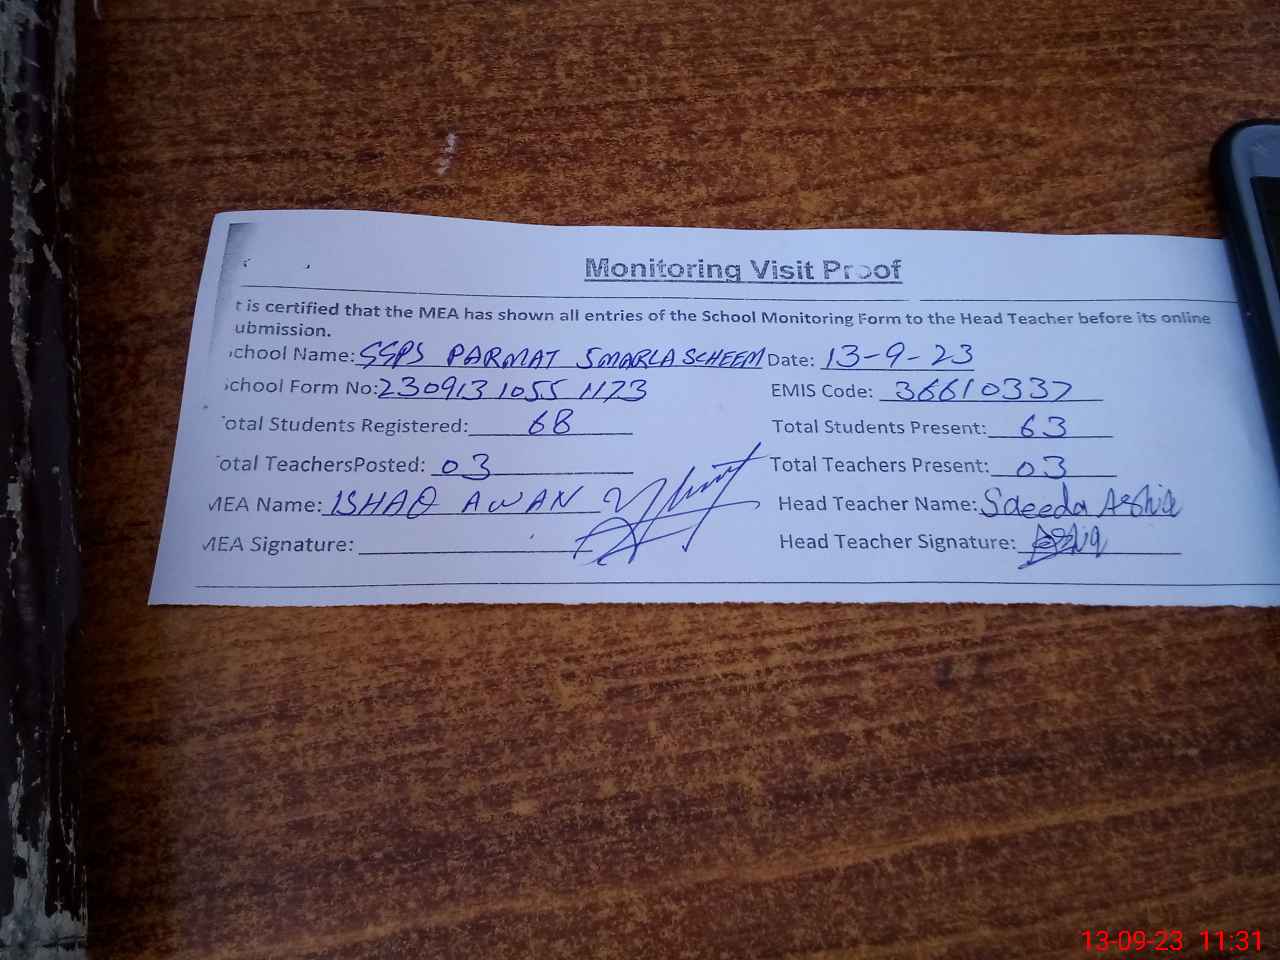 Monitoring Visit Proof
t is certified that the MEA has shown all entries of the School Monitoring Form to the Head Teacher before its online
ubmission.
chool Name: GGPS PARMAT 5MARLA SCHEEM Date: 13-9-23
chool Form No: 2309131055 1173 EMIS Code: 36610337
otal Students Registered: 68 Total Students Present: 63
otal TeachersPosted: 03 Total Teachers Present: 03
MEA Name: ISHAQ AWAN Head Teacher Name: Saeeda Ashiq
MEA Signature: Head Teacher Signature: Ashiq
13-09-23 11:31